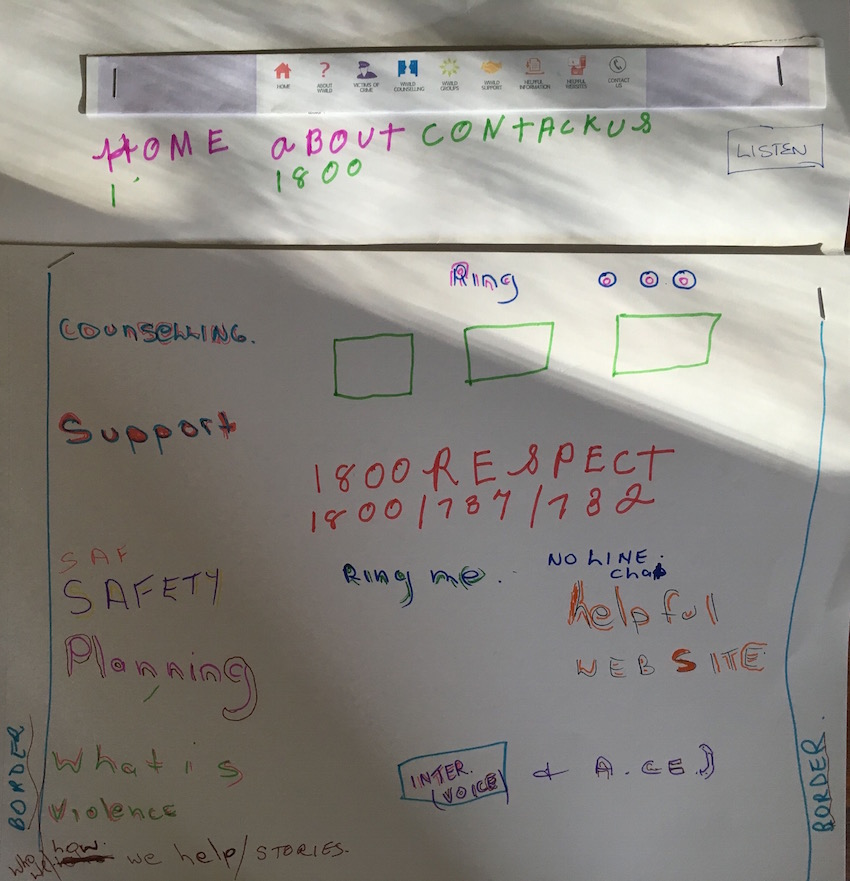 HOME
ABOUT WWILD
VICTIMS OF CRIME
WWILD COUNSELLING
WWILD GROUPS
WWILD SUPPORT
HELPFUL INFORMATION
HELPFUL WEBSITES
CONTACT US
HOME aBOUT CONTACKUS
1 1800
LISTEN
Ring
COUNSELLING.
Support
1800 RESPECT
1800/737/732
SAF
SAFETY
Ring me.
NO LINE.
chat
helpful
Planning
WEB SITE
What is
INTER.
(VOICE)
& A.CE.)
violence
BORDER
BORDER.
how.
we help/STORIES.